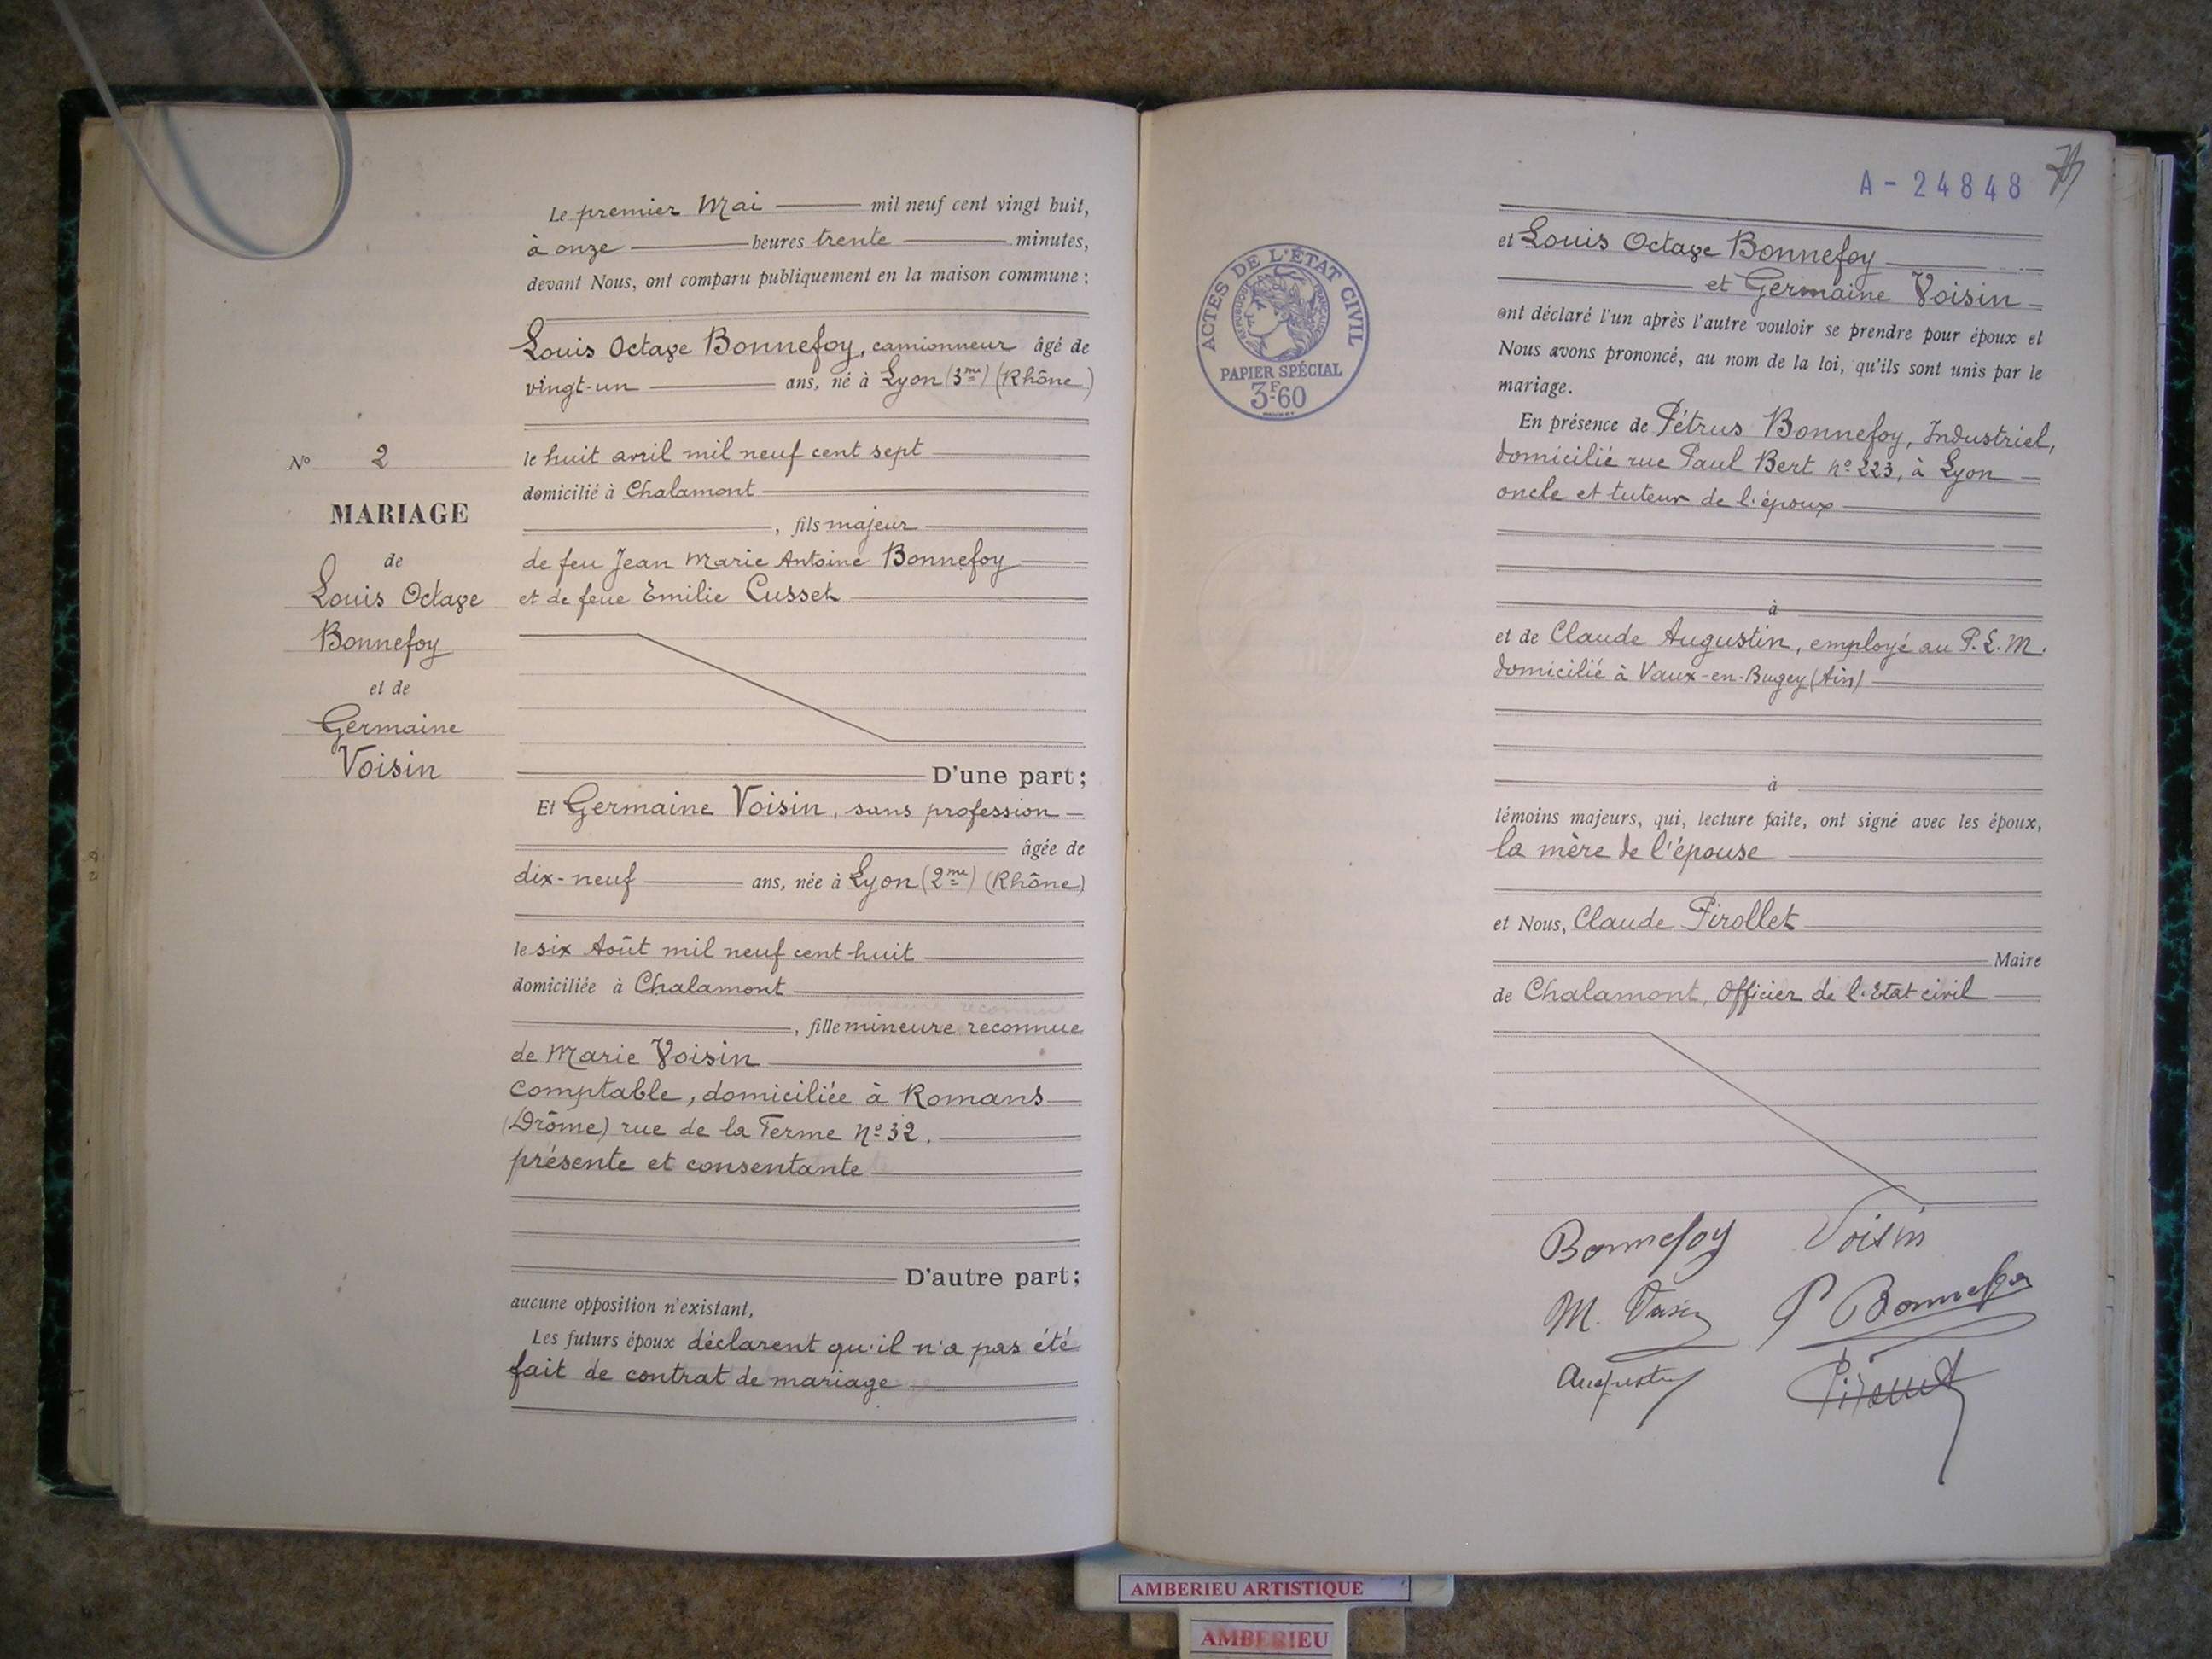 Le premier Mai mil neuf cent vingt huit,
à onze heures trente minutes,
devant Nous, ont comparu publiquement en la maison commune :
Louis Octave Bonnefoy, camionneur âgé de
vingt-un ans, né à Lyon (3me) (Rhône)
le huit avril mil neuf cent sept
domicilié à Chalamont
, fils majeur
de feu Jean Marie Antoine Bonnefoy
et de feue Emilie Cusset
D'une part;
Et Germaine Voisin, sans profession
âgée de
dix-neuf ans, née à Lyon (2me) (Rhône)
le six Août mil neuf cent huit
domiciliée à Chalamont
, fille mineure reconnue
de Marie Voisin
comptable, domiciliée à Romans
(Drôme) rue de la Ferme No 32.
présente et consentante
D'autre part;
aucune opposition n'existant,
Les futurs époux déclarent qu'il n'a pas été
fait de contrat de mariage
No 2
MARIAGE
de
Louis Octave
Bonnefoy
et de
Germaine
Voisin
A-24848
ACTES DE L'ÉTAT CIVIL
RÉPUBLIQUE FRANÇAISE
PAPIER SPÉCIAL
3F60
et Louis Octave Bonnefoy
et Germaine Voisin
ont déclaré l'un après l'autre vouloir se prendre pour époux et
Nous avons prononcé, au nom de la loi, qu'ils sont unis par le
mariage.
En présence de Pétrus Bonnefoy, Industriel,
domicilié rue Paul Bert no 223, à Lyon
oncle et tuteur de l'époux
à
et de Claude Augustin, employé au P.L.M.
domicilié à Vaux-en-Bugey (Ain)
à
témoins majeurs, qui, lecture faite, ont signé avec les époux,
la mère de l'épouse
et Nous, Claude Pirollet
Maire
de Chalamont, Officier de l'Etat civil
Bonnefoy Voisin
M. Voisin P Bonnefoy
Augustin Pirollet
AMBERIEU ARTISTIQUE
AMBERIEU